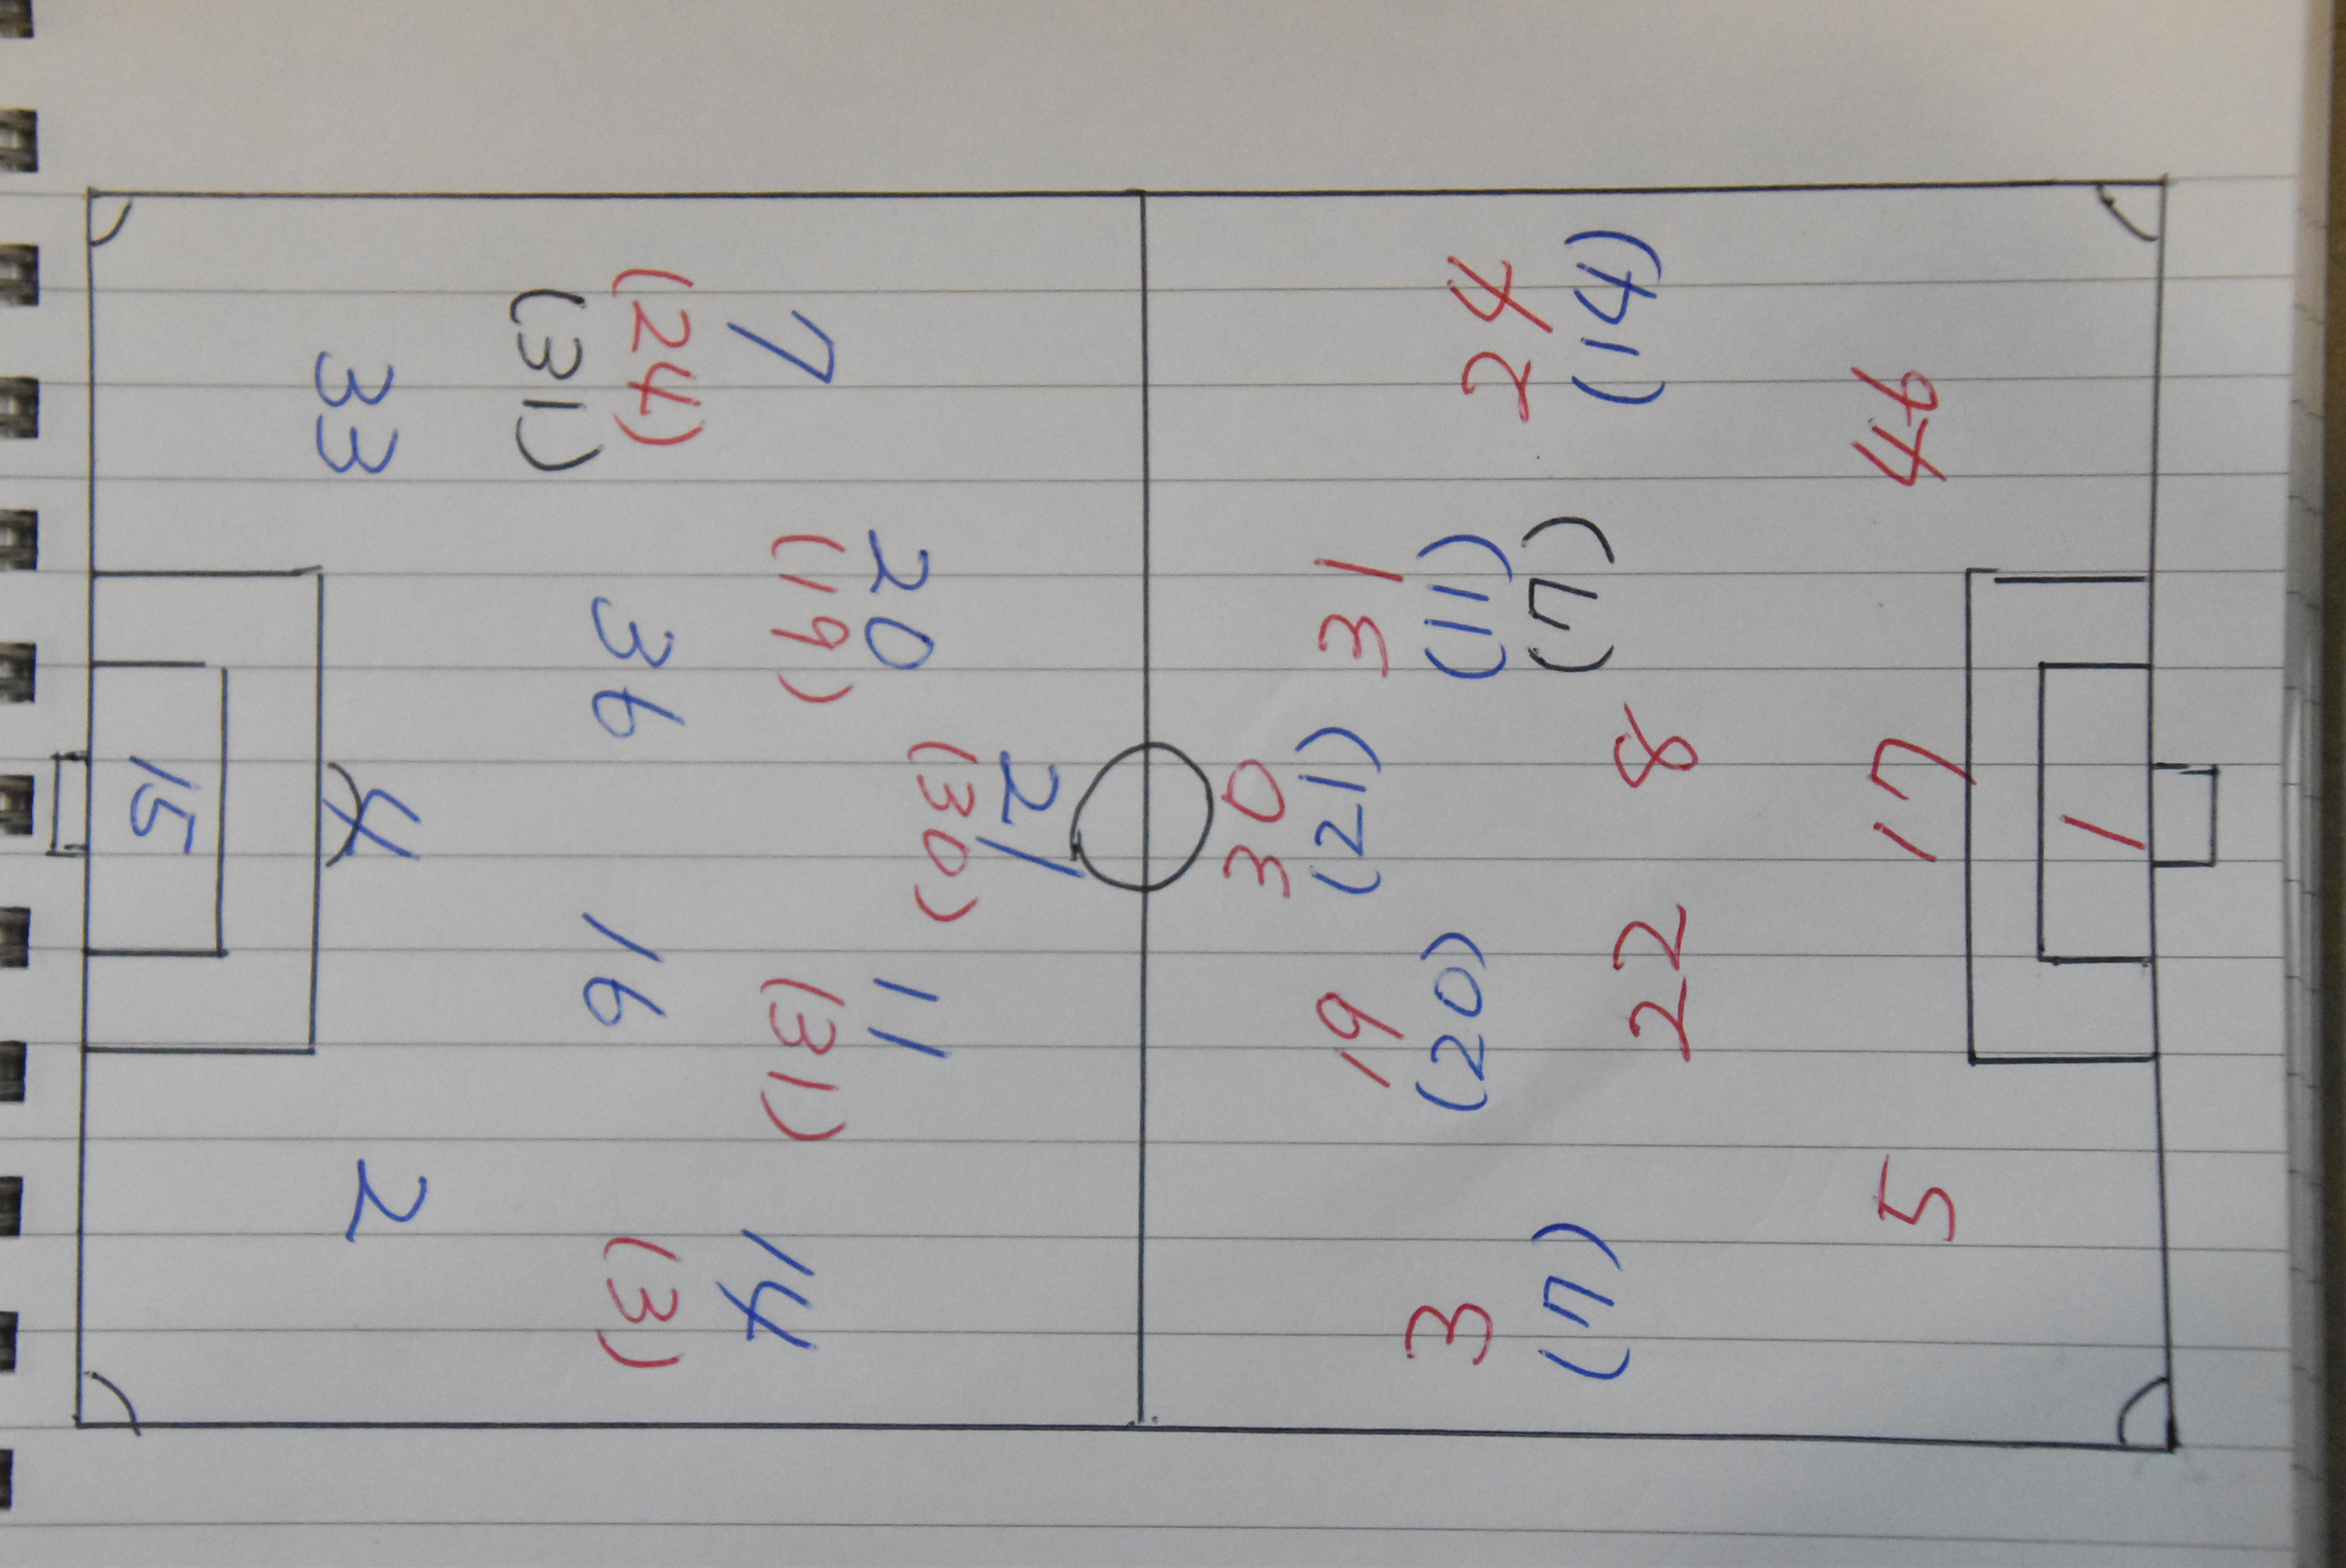 21
(30)
20
(19)
11
(31)
7
(24)
(31)
14
(3)
36
16
33
4
2
15
30
(21)
19
(20)
31
(11)
(7)
3
(7)
24
(14)
22
8
5
17
44
1